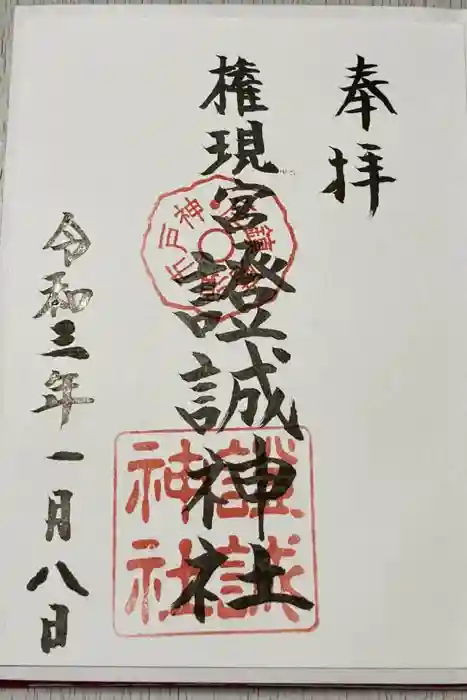 奉拝
権現宮證誠神社
令和三年一月八日
證誠
神社